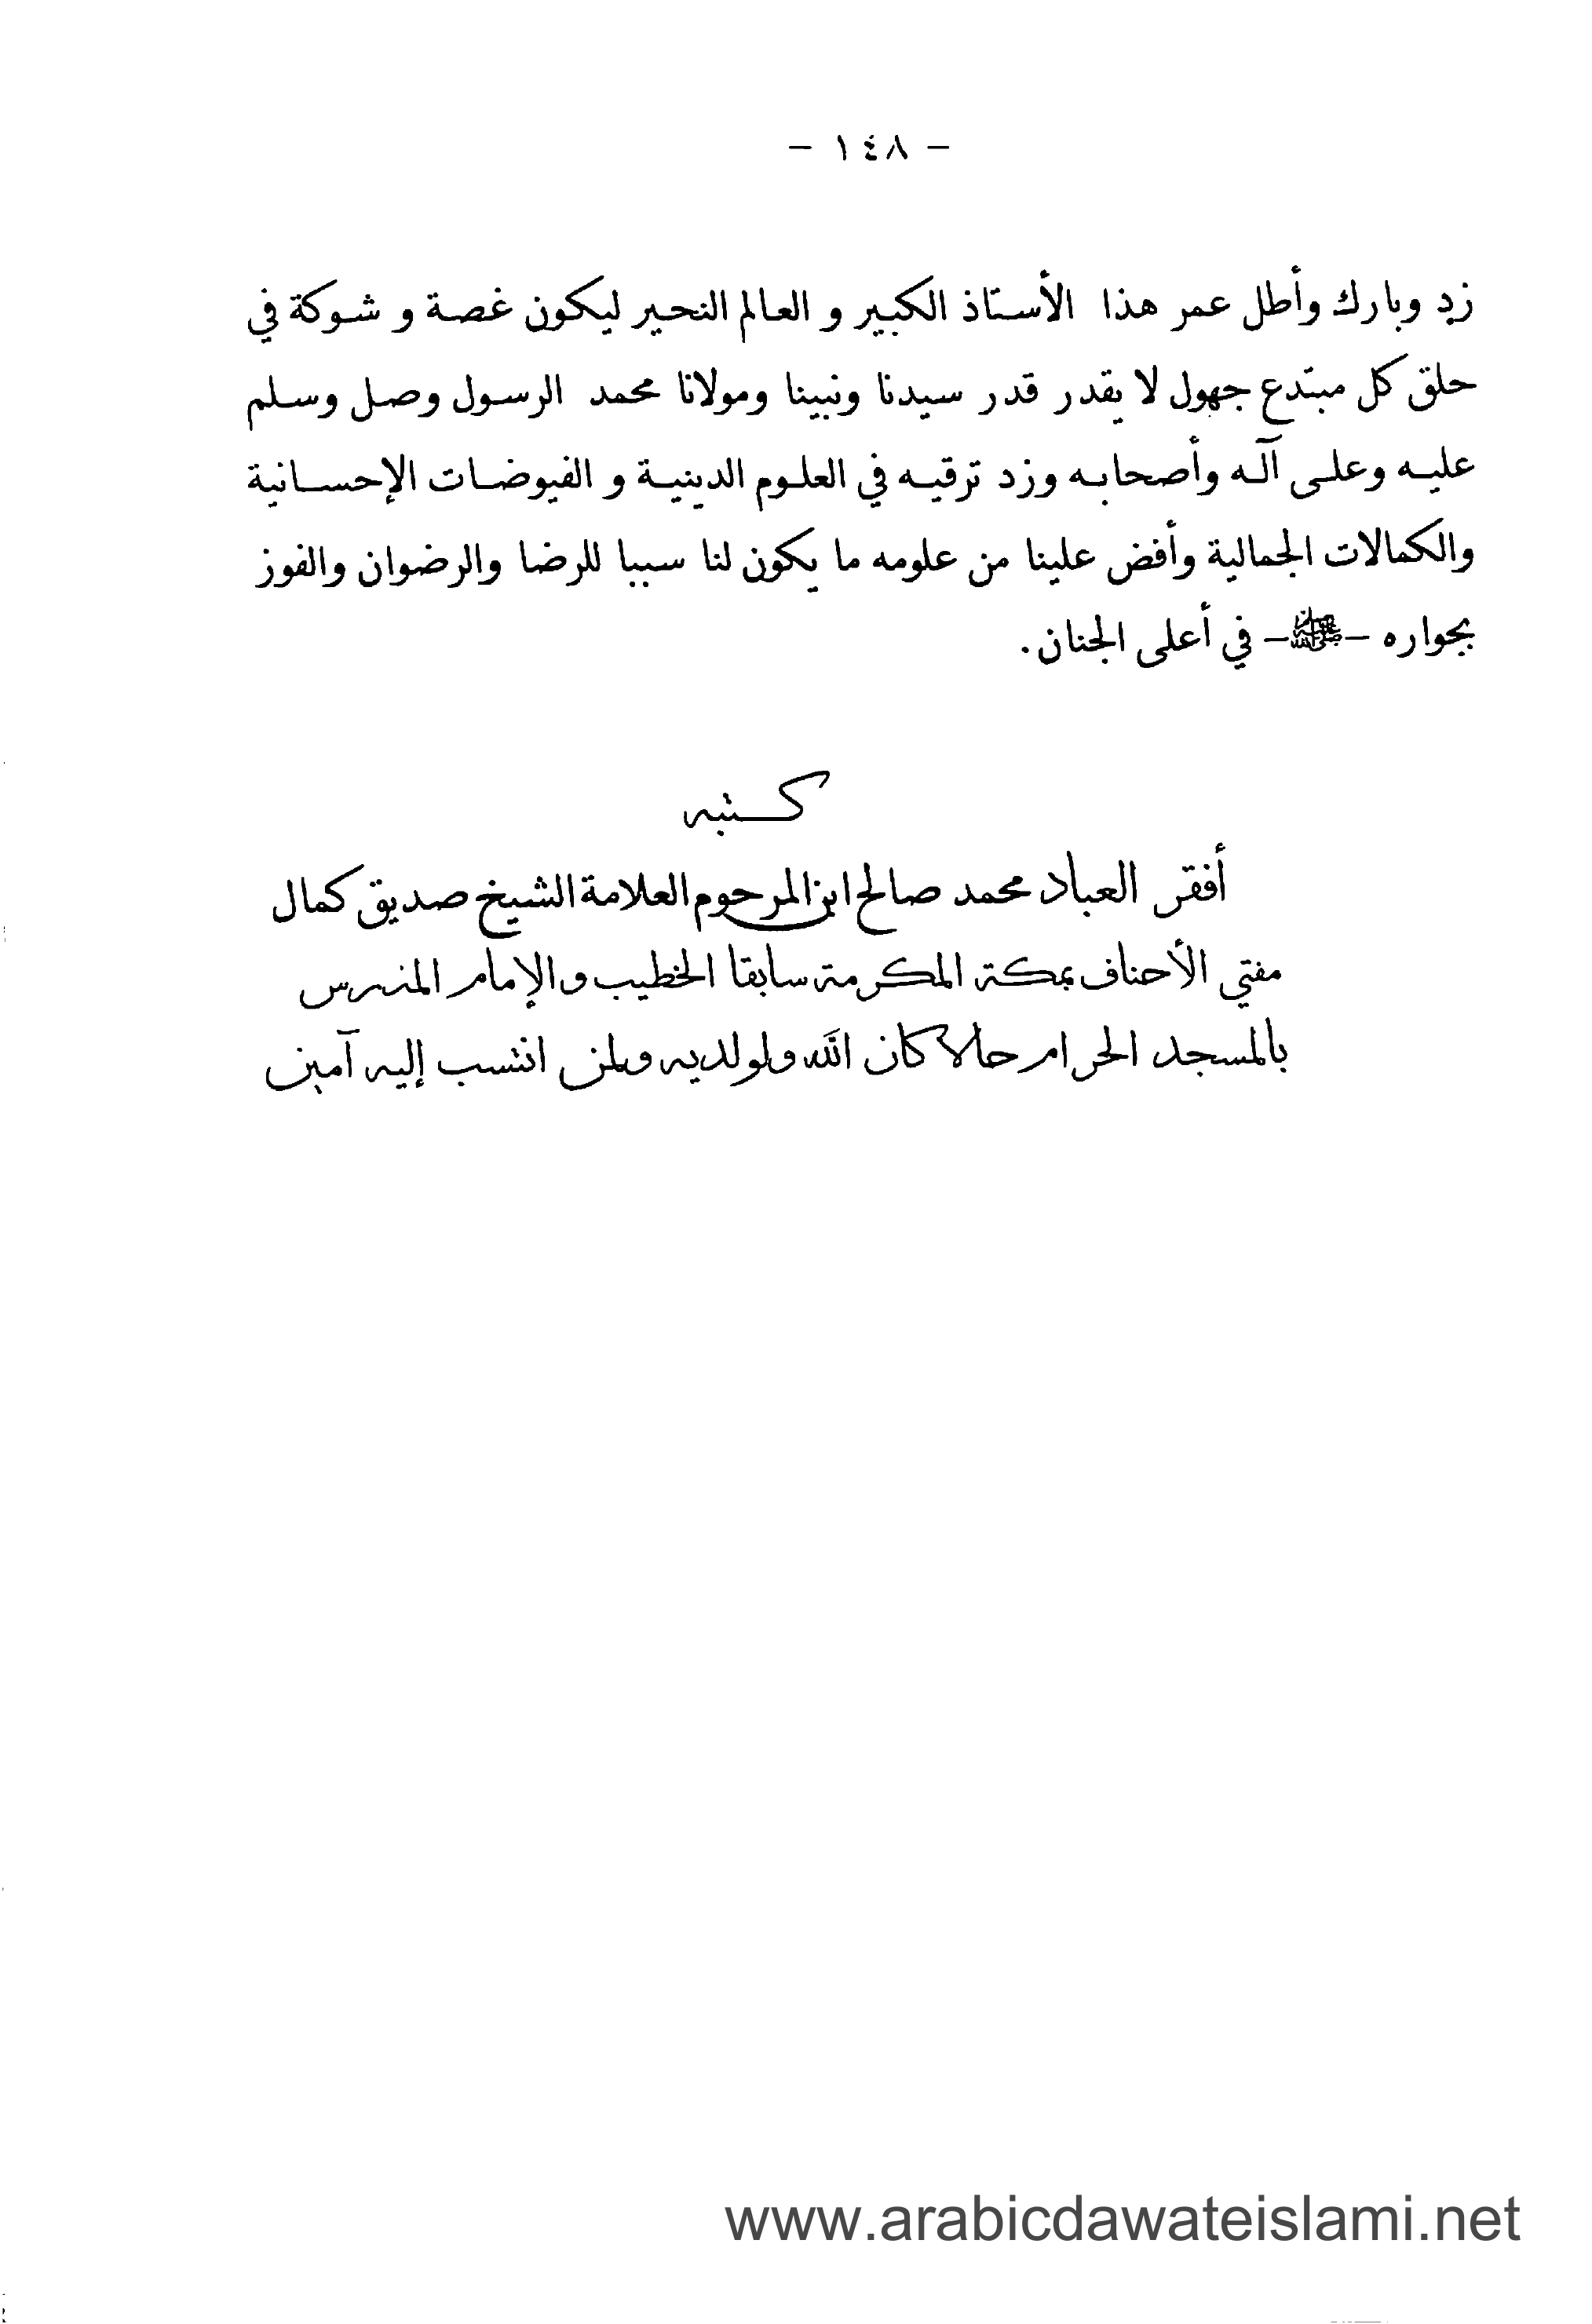 – ١٤٨ –
زد وبارك وأطل عمر هذا الأستاذ الكبير و العالم النحير ليكون غصة و شوكة في
حلق كل مبتدع جهول لا يقدر قدر سيدنا ونبينا ومولانا محمد الرسول وصل وسلم
عليه وعلى آله وأصحابه وزد ترقيه في العلوم الدينية و الفيوضات الإحسانية
والكمالات الجمالية وأفض علينا من علومه ما يكون لنا سببا للرضا والرضوان والفوز
بجواره –ﷺ– في أعلى الجنان.
كتبه
أفقر العباد محمد صالح ابن المرحوم العلامة الشيخ صديق كمال
مفتي الأحناف بمكة المكرمة سابقا الخطيب والإمام المدرس
بالمسجد الحرام حالا كان الله ولولديه ولمن انتسب إليه آمين
www.arabicdawateislami.net